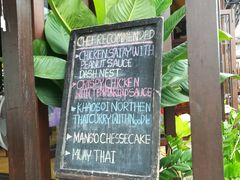 CHEF RECOMMENDED
CHICKEN SATAY WITH
PEANUT SAUCE
DISH NEST
CRISPY CHICKEN
WITH TAMARIND SAUCE
KHAO SOI NORTHEN
THAI CURRY WITH NOODLE
MANGO CHESSECAKE
MUAY THAI